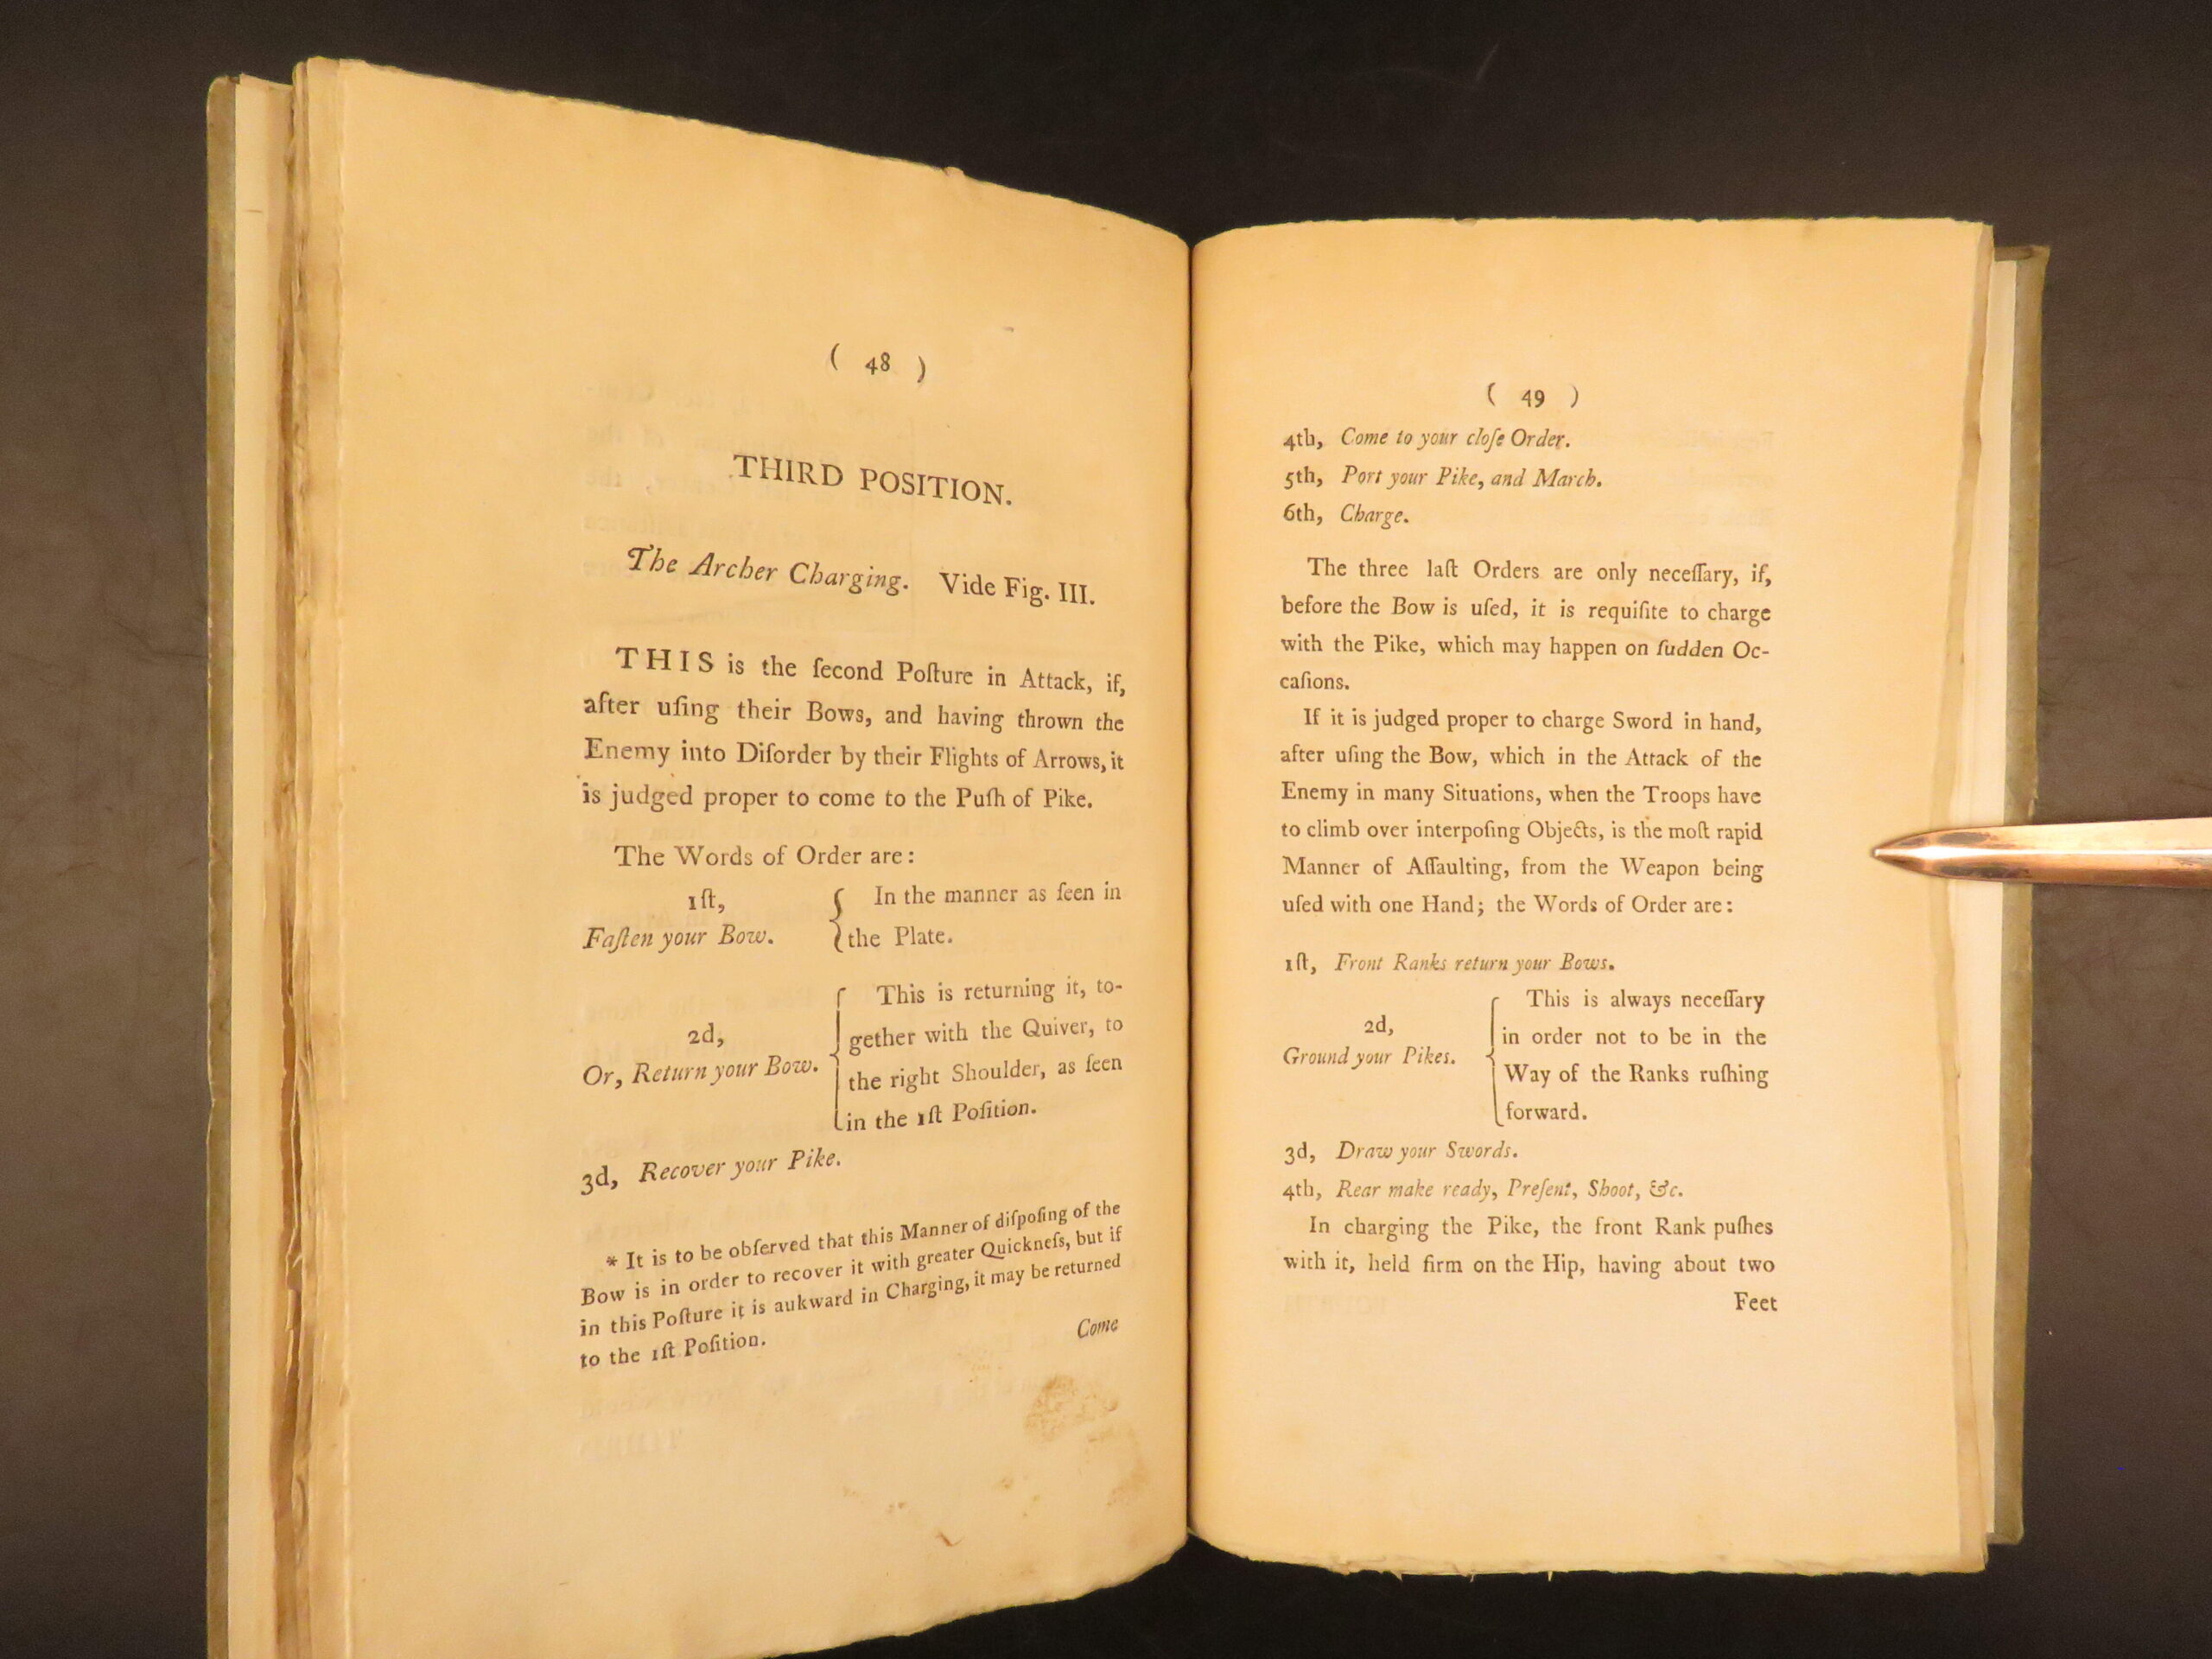 ( 48 )
THIRD POSITION.
The Archer Charging. Vide Fig. III.
THIS is the ſecond Poſture in Attack, if,
after uſing their Bows, and having thrown the
Enemy into Diſorder by their Flights of Arrows, it
is judged proper to come to the Puſh of Pike.
The Words of Order are:
1ſt,
Faſten your Bow.
In the manner as ſeen in
the Plate.
2d,
Or, Return your Bow.
This is returning it, to-
gether with the Quiver, to
the right Shoulder, as ſeen
in the 1ſt Poſition.
3d, Recover your Pike.
* It is to be obſerved that this Manner of diſpoſing of the
Bow is in order to recover it with greater Quickneſs, but if
in this Poſture it is aukward in Charging, it may be returned
to the 1ſt Poſition.
Come
( 49 )
4th, Come to your cloſe Order.
5th, Port your Pike, and March.
6th, Charge.
The three laſt Orders are only neceſſary, if,
before the Bow is uſed, it is requiſite to charge
with the Pike, which may happen on ſudden Oc-
caſions.
If it is judged proper to charge Sword in hand,
after uſing the Bow, which in the Attack of the
Enemy in many Situations, when the Troops have
to climb over interpoſing Objects, is the moſt rapid
Manner of Aſſaulting, from the Weapon being
uſed with one Hand; the Words of Order are:
1ſt, Front Ranks return your Bows.
2d,
Ground your Pikes.
This is always neceſſary
in order not to be in the
Way of the Ranks ruſhing
forward.
3d, Draw your Swords.
4th, Rear make ready, Preſent, Shoot, &c.
In charging the Pike, the front Rank puſhes
with it, held firm on the Hip, having about two
Feet